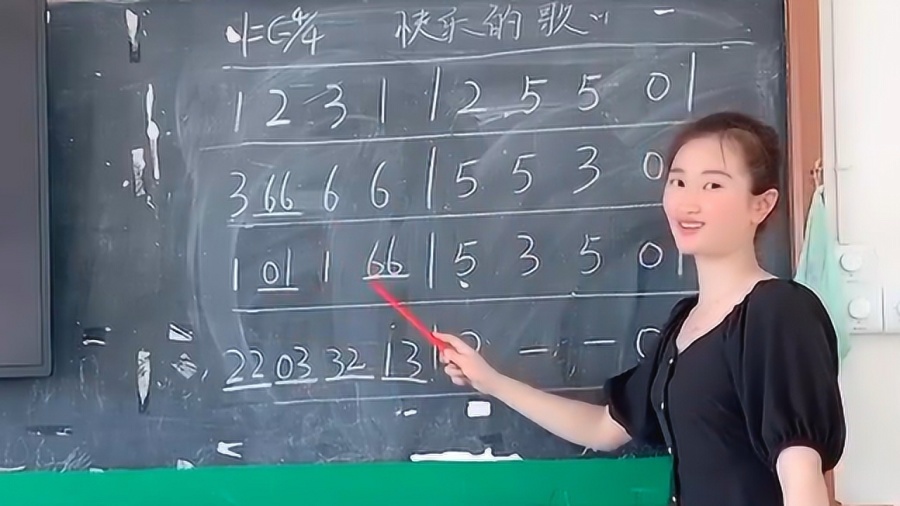 1=C 4/4 快乐的歌
1 2 3 1 | 2 5 5 0 |
3 66 6 6 | 5 5 3 0
1 01 1 66 | 5 3 5 0 |
22 03 32 13 | 2 - - 0